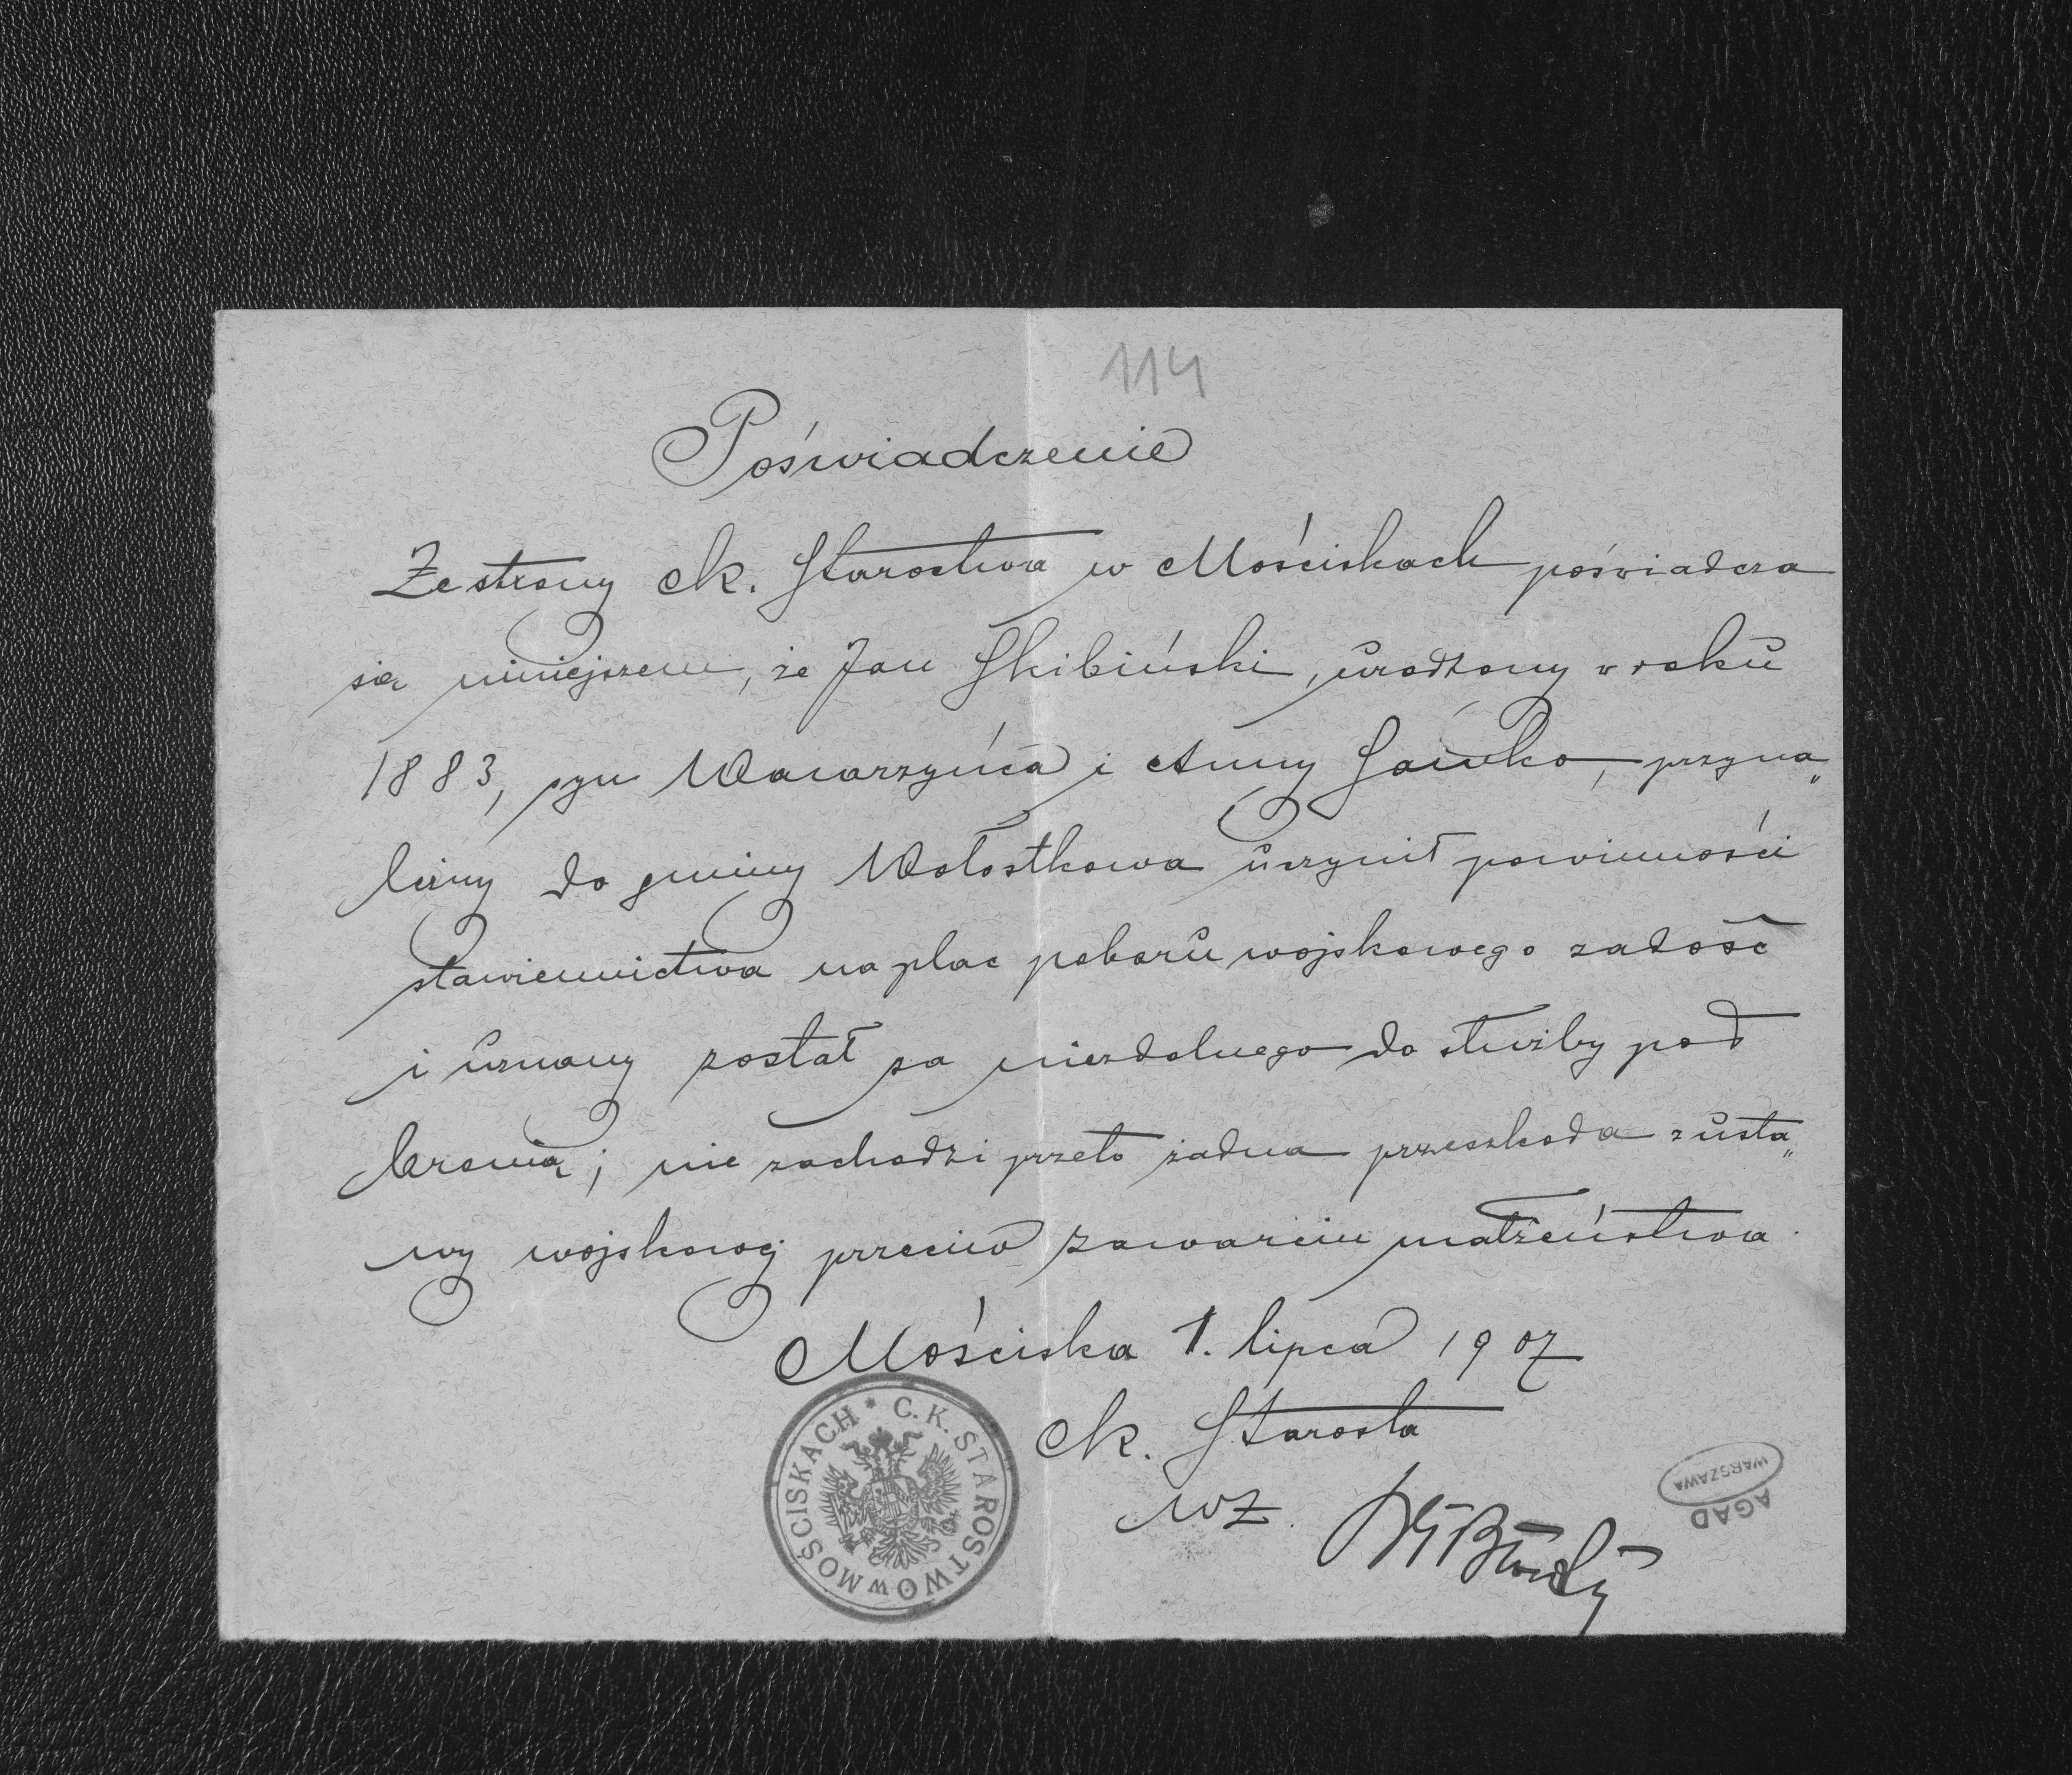 114
Poświadczenie
Ze strony ck. Starostwa w Mościskach poświadcza
się niniejszem, że Jan Skibiński, urodzony w roku
1883, syn Wawrzyńca i Anny Sawko, przyna„
leżny do gminy Wołostkowa uczynił powinności
stawiennictwa na plac poboru wojskowego zadość
i uznany został za niezdolnego do służby pod
bronią; nie zachodzi przeto żadna przeszkoda z usta„
wy wojskowej przeciw zawarciu małżeństwa.
Mościska 1. lipca 1907
ck. Starosta
wz.
C. K. STAROSTWO W MOŚCISKACH *
AGAD
WARSZAWA